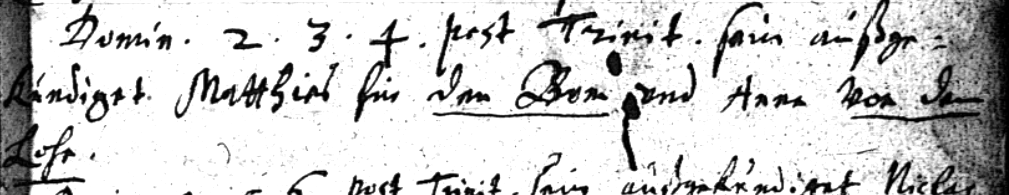 Domin. 2. 3. 4. post Trinit. sein außge=
kündiget. Matthies für dem Bom und Anna von dem
Lohe.
post Trinit. sein außgekündiget Niclas